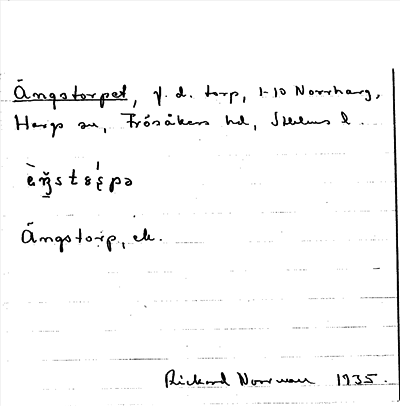 Ängstorpet, f. d. torp, 1-10 Norrharg,
Hargs sn, Frösåkers hd, Sthlms l.
Ängstorp, ek.
Rickard Norrman 1935.